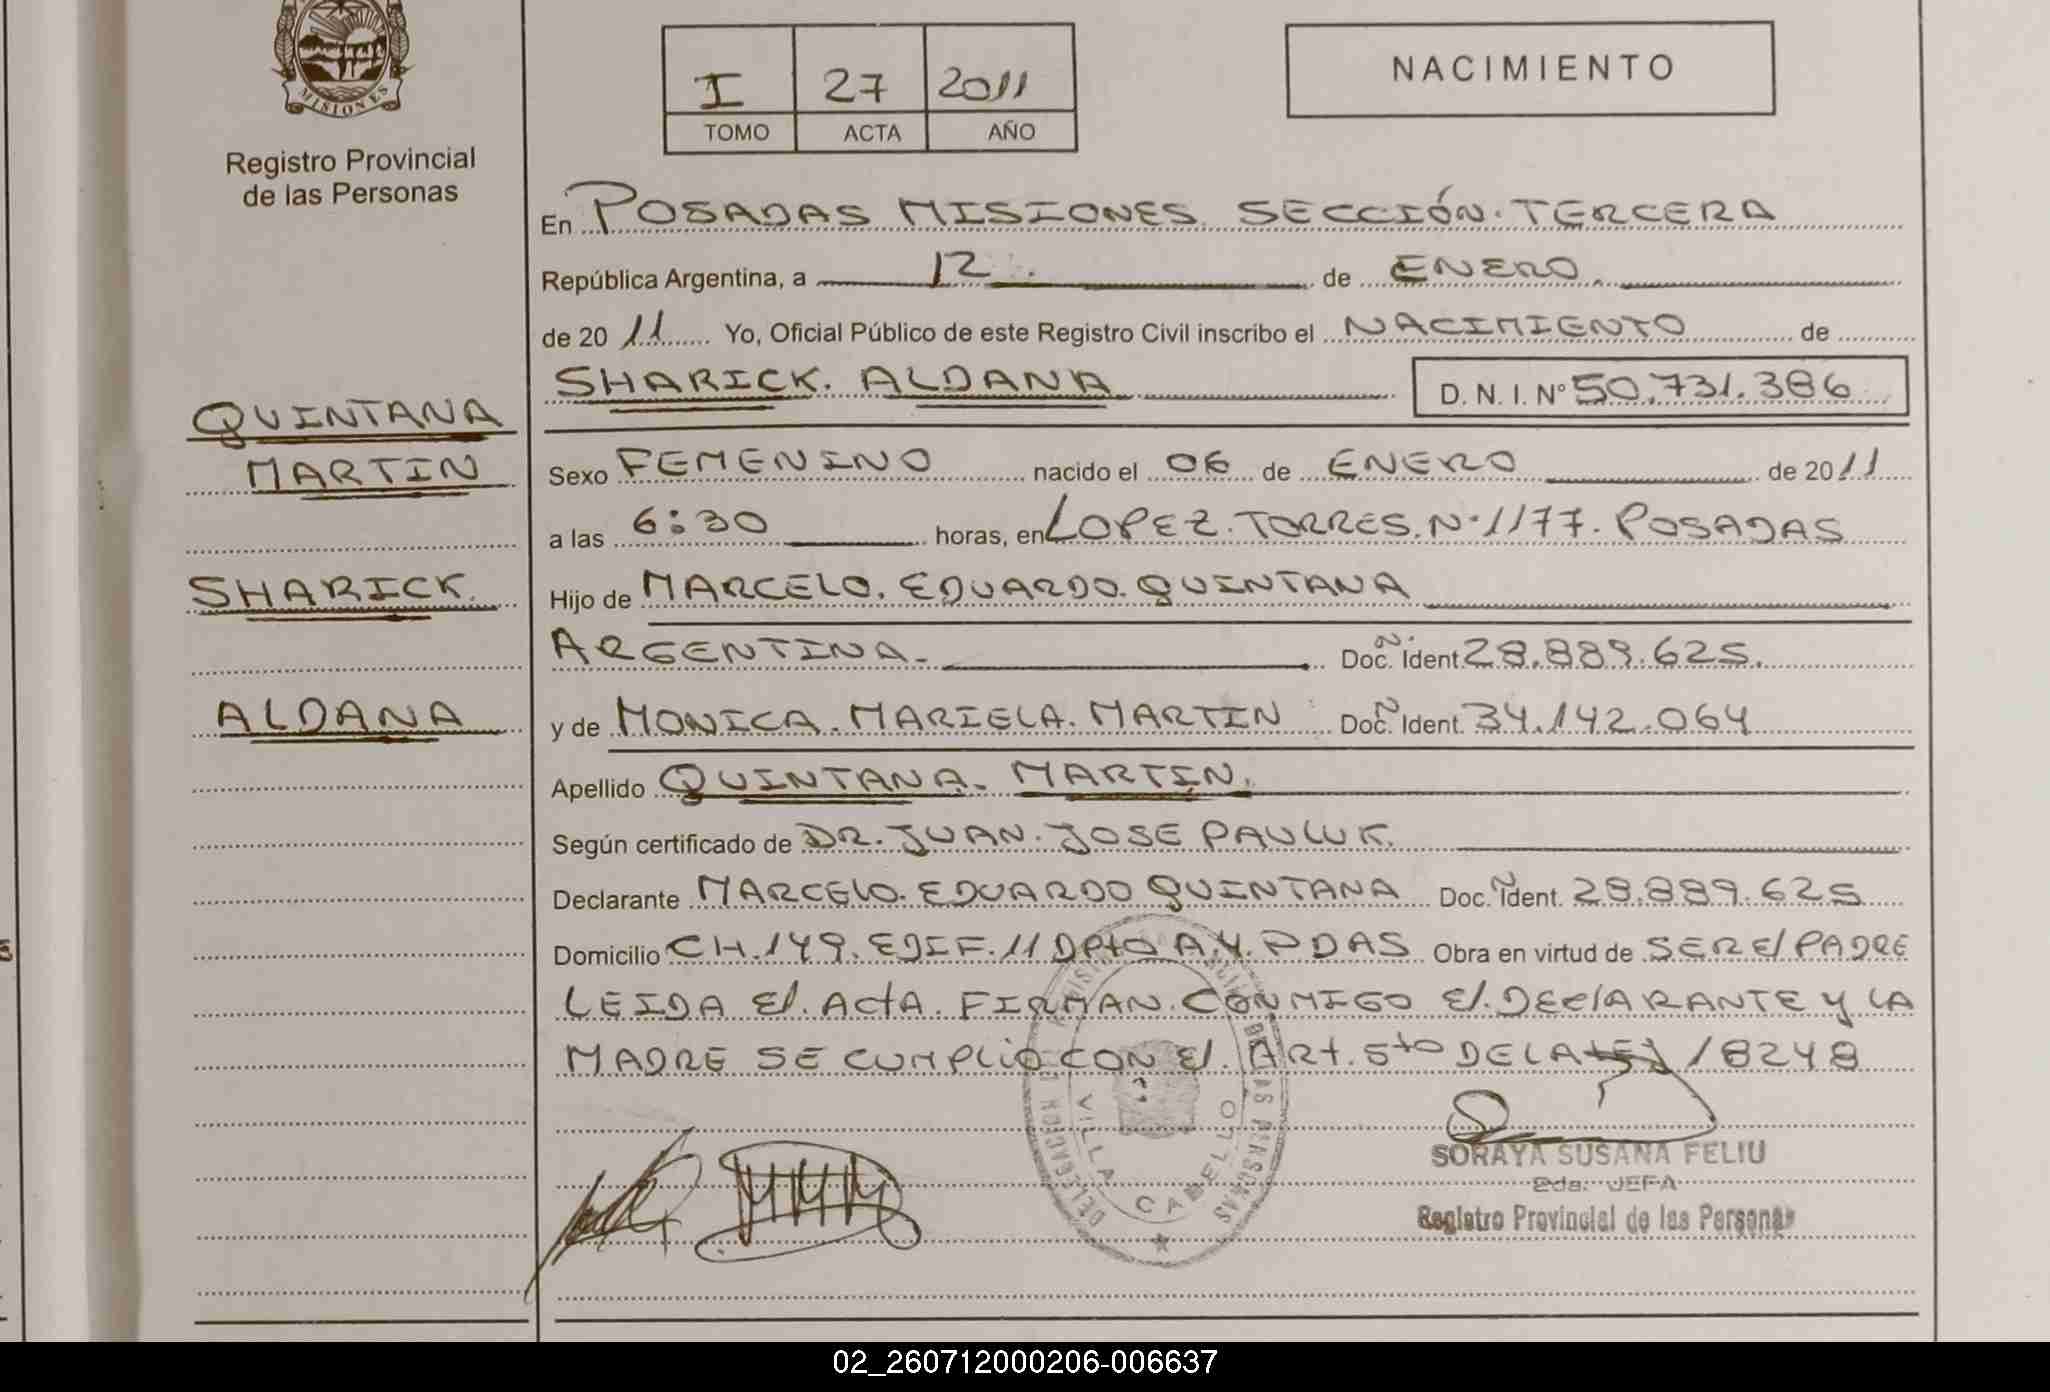 MISIONES
Registro Provincial
de las Personas
I 27 2011
TOMO ACTA AÑO
NACIMIENTO
En POSADAS MISIONES SECCIÓN TERCERA
República Argentina, a 12 de ENERO
de 2011 Yo, Oficial Público de este Registro Civil inscribo el NACIMIENTO de
SHARICK. ALDANA D. N. I. Nº 50.731.386
QUINTANA
MARTIN
SHARICK.
ALDANA
Sexo FEMENINO nacido el 06 de ENERO de 2011
a las 6:30 horas, en LOPEZ. TORRES. Nº 1177. POSADAS
Hijo de MARCELO. EDUARDO. QUINTANA
ARGENTINA. Doc. Ident. 28.889.625.
y de MONICA. MARIELA. MARTIN Doc. Ident. 34.142.064
Apellido QUINTANA. MARTIN.
Según certificado de DR. JUAN. JOSE PAULUK.
Declarante MARCELO. EDUARDO QUINTANA Doc. Ident. 28.889.625
Domicilio CH. 149. EDIF. 11 Dpto A.4. PDAS Obra en virtud de SER El PADRE
LEIDA El. ActA. FIRMAN. CONMIGO El. DEClARANTE y LA
MADRE SE CUMPLIO CON El. ARt. 5to DE LA LEY 18248
VILLA CABELLO
SORAYA SUSANA FELIU
2da. JEFA
Registro Provincial de las Personas
02_260712000206-006637